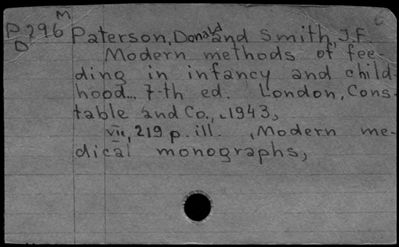 M
P296 Paterson, Donald and Smith, J.F.
D Modern methods of fee-
ding in infancy and child-
hood... 7-th ed. London, Cons-
table and Co., 1943,
VII, 219 p. ill. , Modern me-
dical monographs,